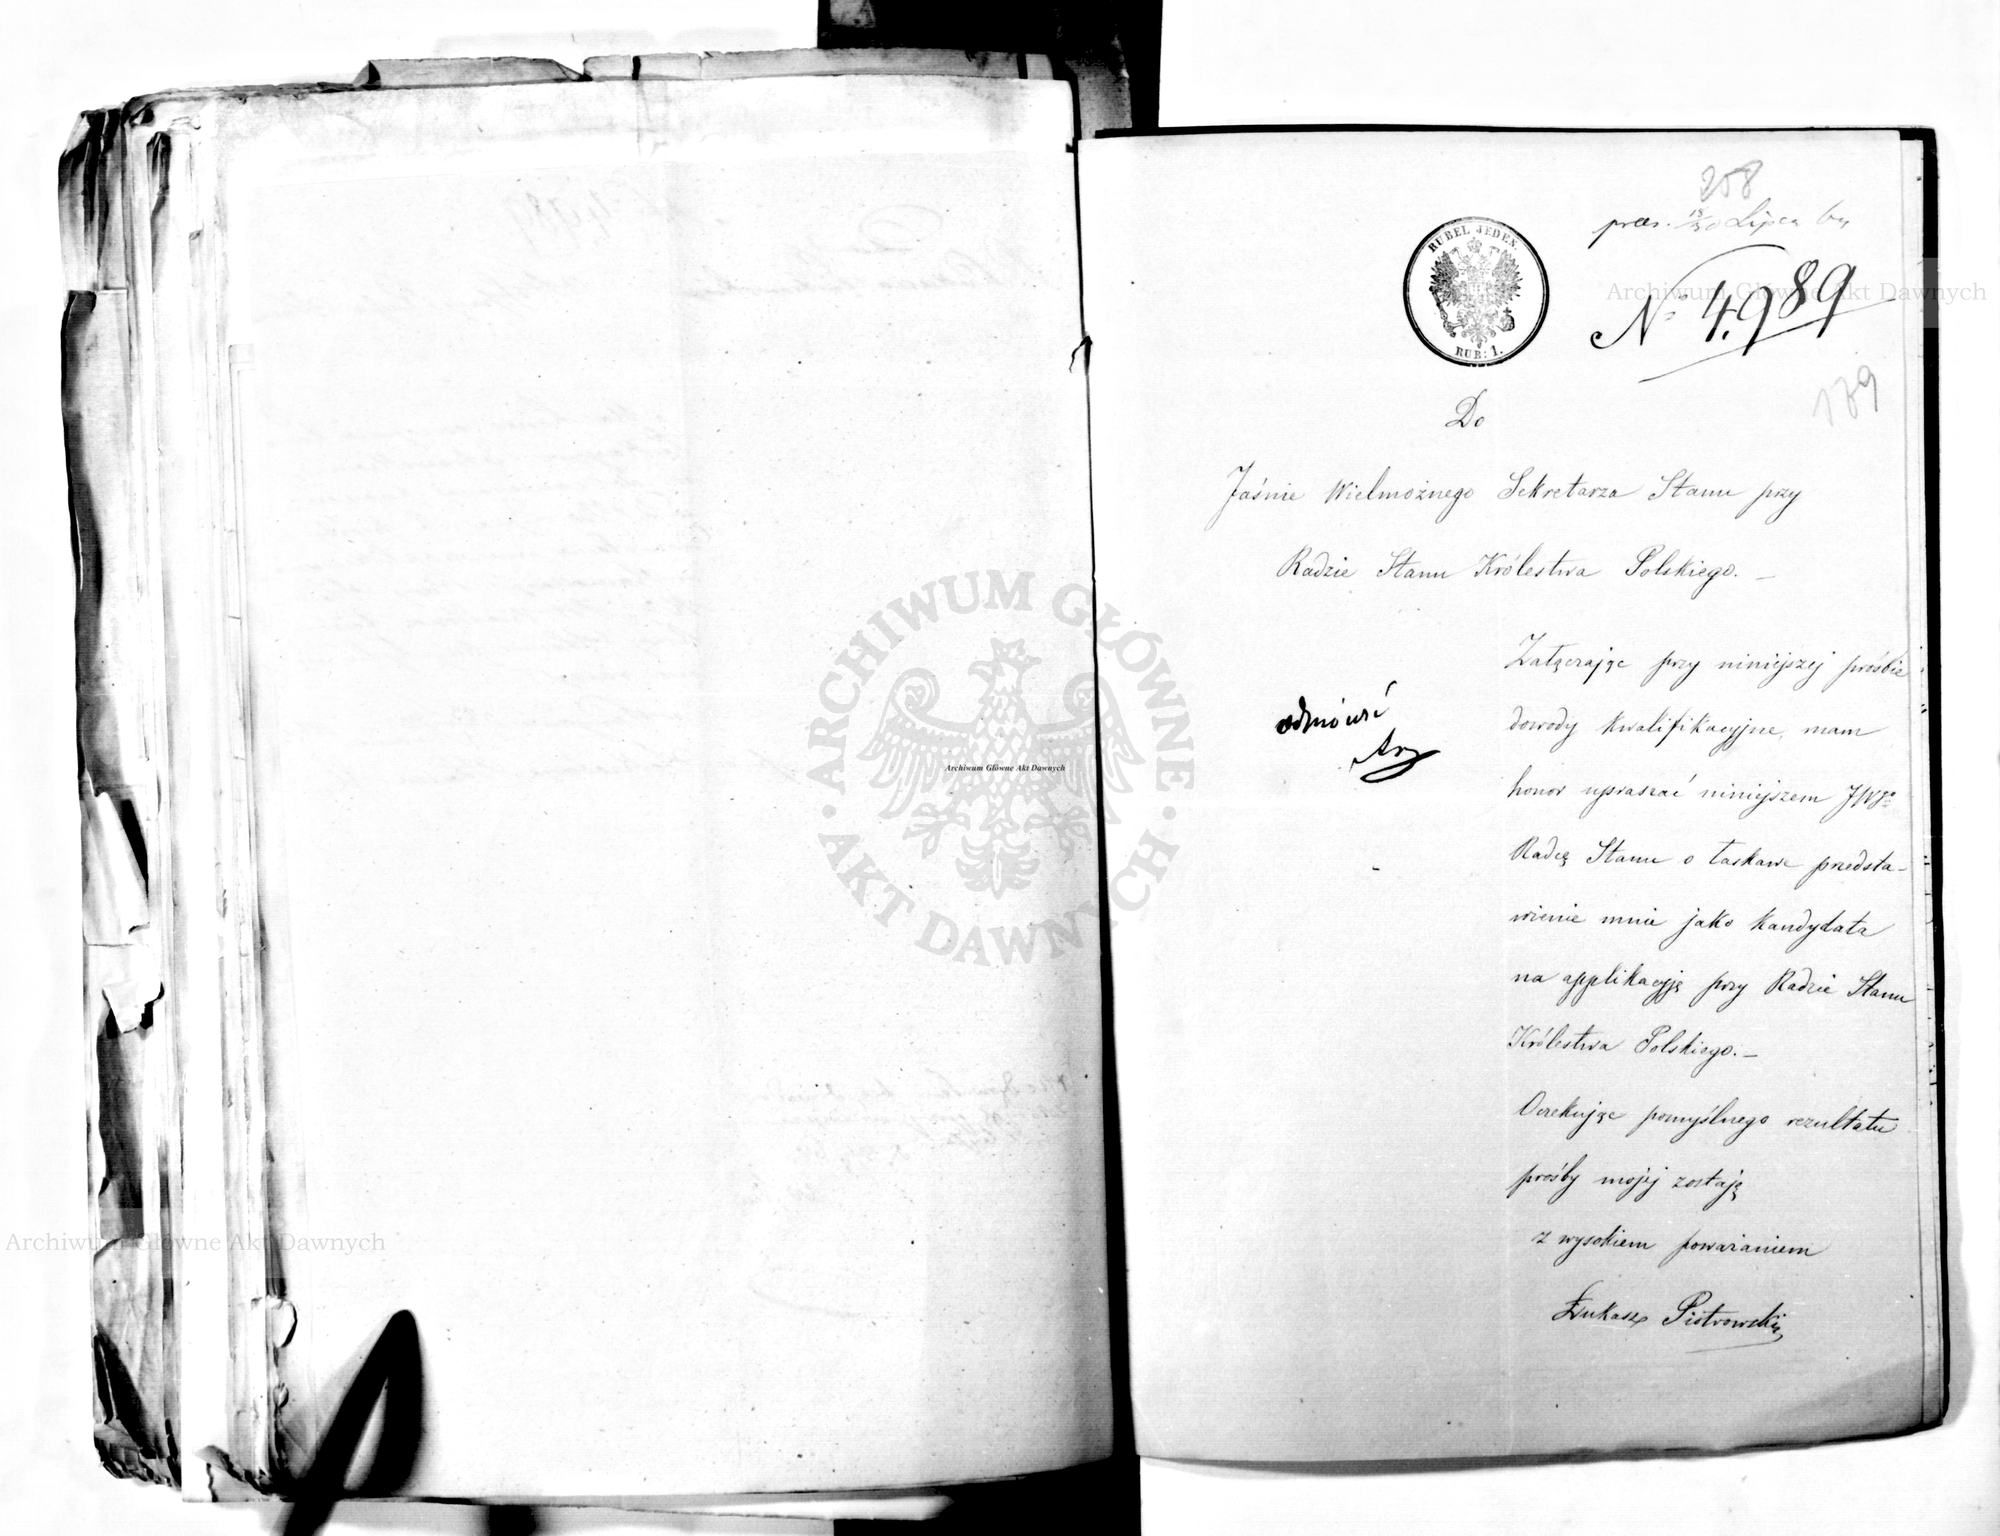 258
prez. 18/30 Lipca 64
RUBEL JEDEN.
RUB: 1.
№ 4989
179
Do
Jaśnie Wielmożnego Sekretarza Stanu przy
Radzie Stanu Królestwa Polskiego. —
Załączając przy niniejszej prośbie
dowody kwalifikacyjne, mam
honor upraszać niniejszem JWgo
Radcę Stanu o łaskawe przedsta-
wienie mnie jako kandydata
na applikacyję przy Radzie Stanu
Królestwa Polskiego. —
Oczekując pomyślnego rezultatu
prośby mojéj zostaję
z wysokiem poważaniem
Łukasz Piotrowski
odmówić
Archiwum Główne Akt Dawnych
ARCHIWUM GŁÓWNE
AKT DAWNYCH
Archiwum Główne Akt Dawnych
Archiwum Główne Akt Dawnych